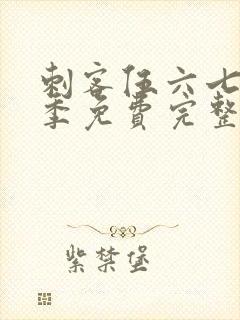 刺客伍六七
季免费完整
紫禁堡